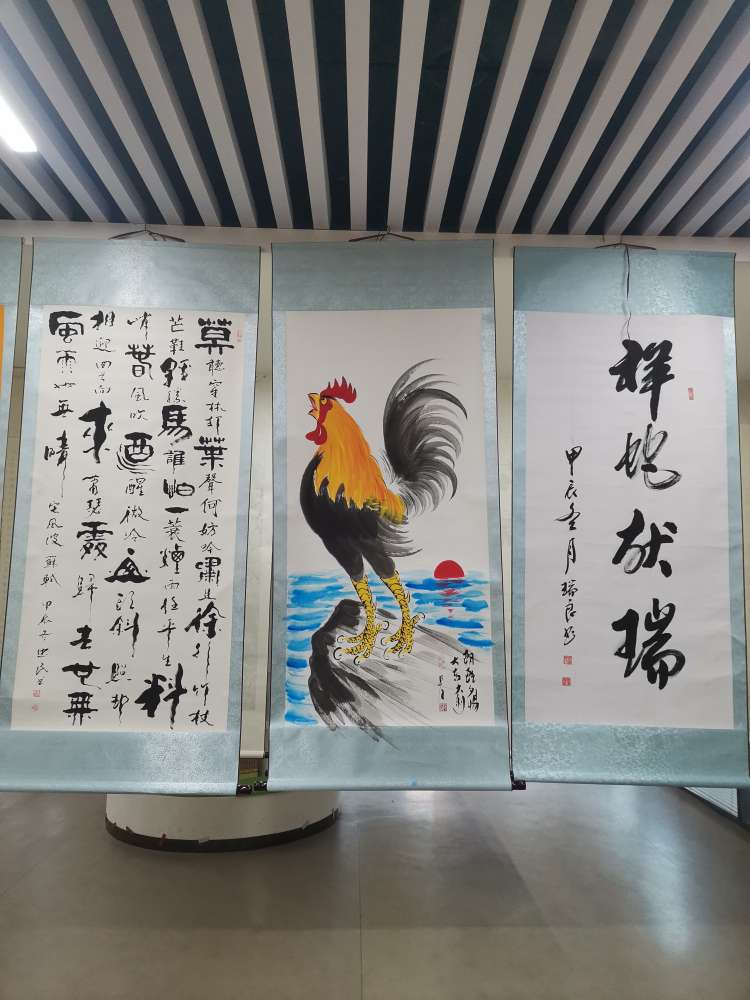 莫聽穿林打葉聲何妨吟嘯且徐行竹杖
芒鞋輕勝馬誰怕一蓑煙雨任平生料
峭春風吹酒醒微冷山頭斜照却
相迎回首向來蕭瑟處歸去也無
風雨也無晴 定風波 蘇軾 甲辰冬
大吉
祥蛇献瑞
甲辰冬月瑞良书